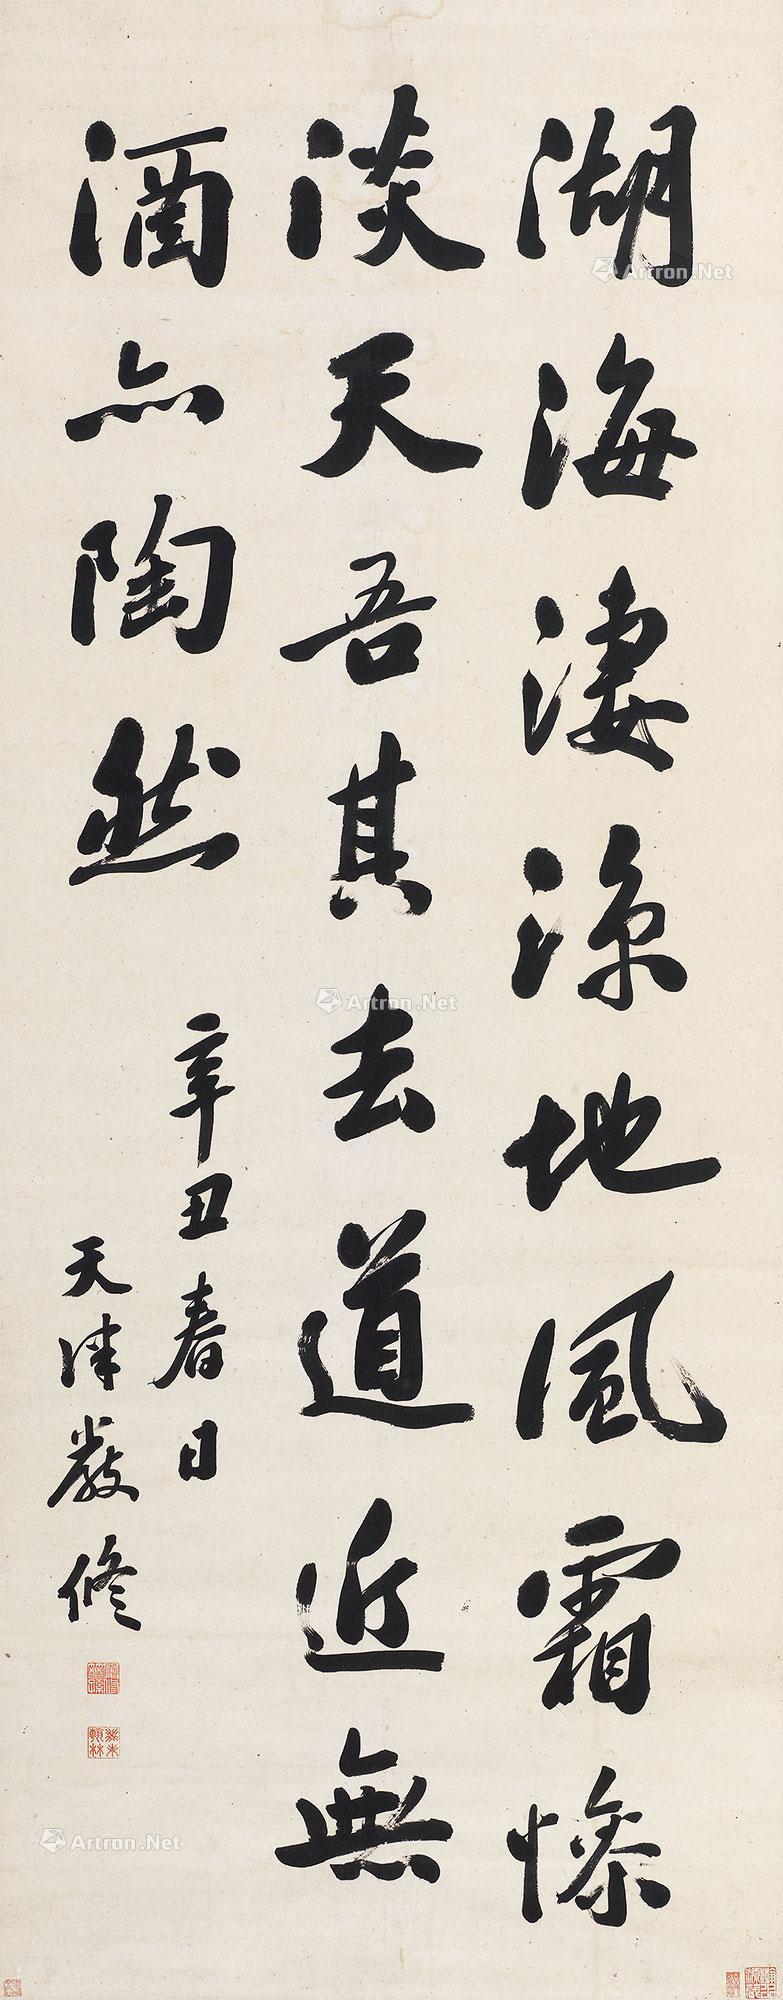 湖海凄涼地風霜慘
淡天吾其去道近無
酒亦陶然
辛丑春日
天津嚴修
癸未翰林
Artron.Net
Artron.Net
Artron.Net